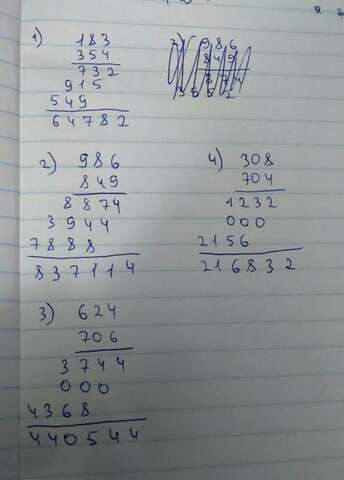 1) 183
354
732
915
549
64782
2) 986
849
8874
3944
7888
837114
4) 308
704
1232
000
2156
216832
3) 624
706
3744
000
4368
440544